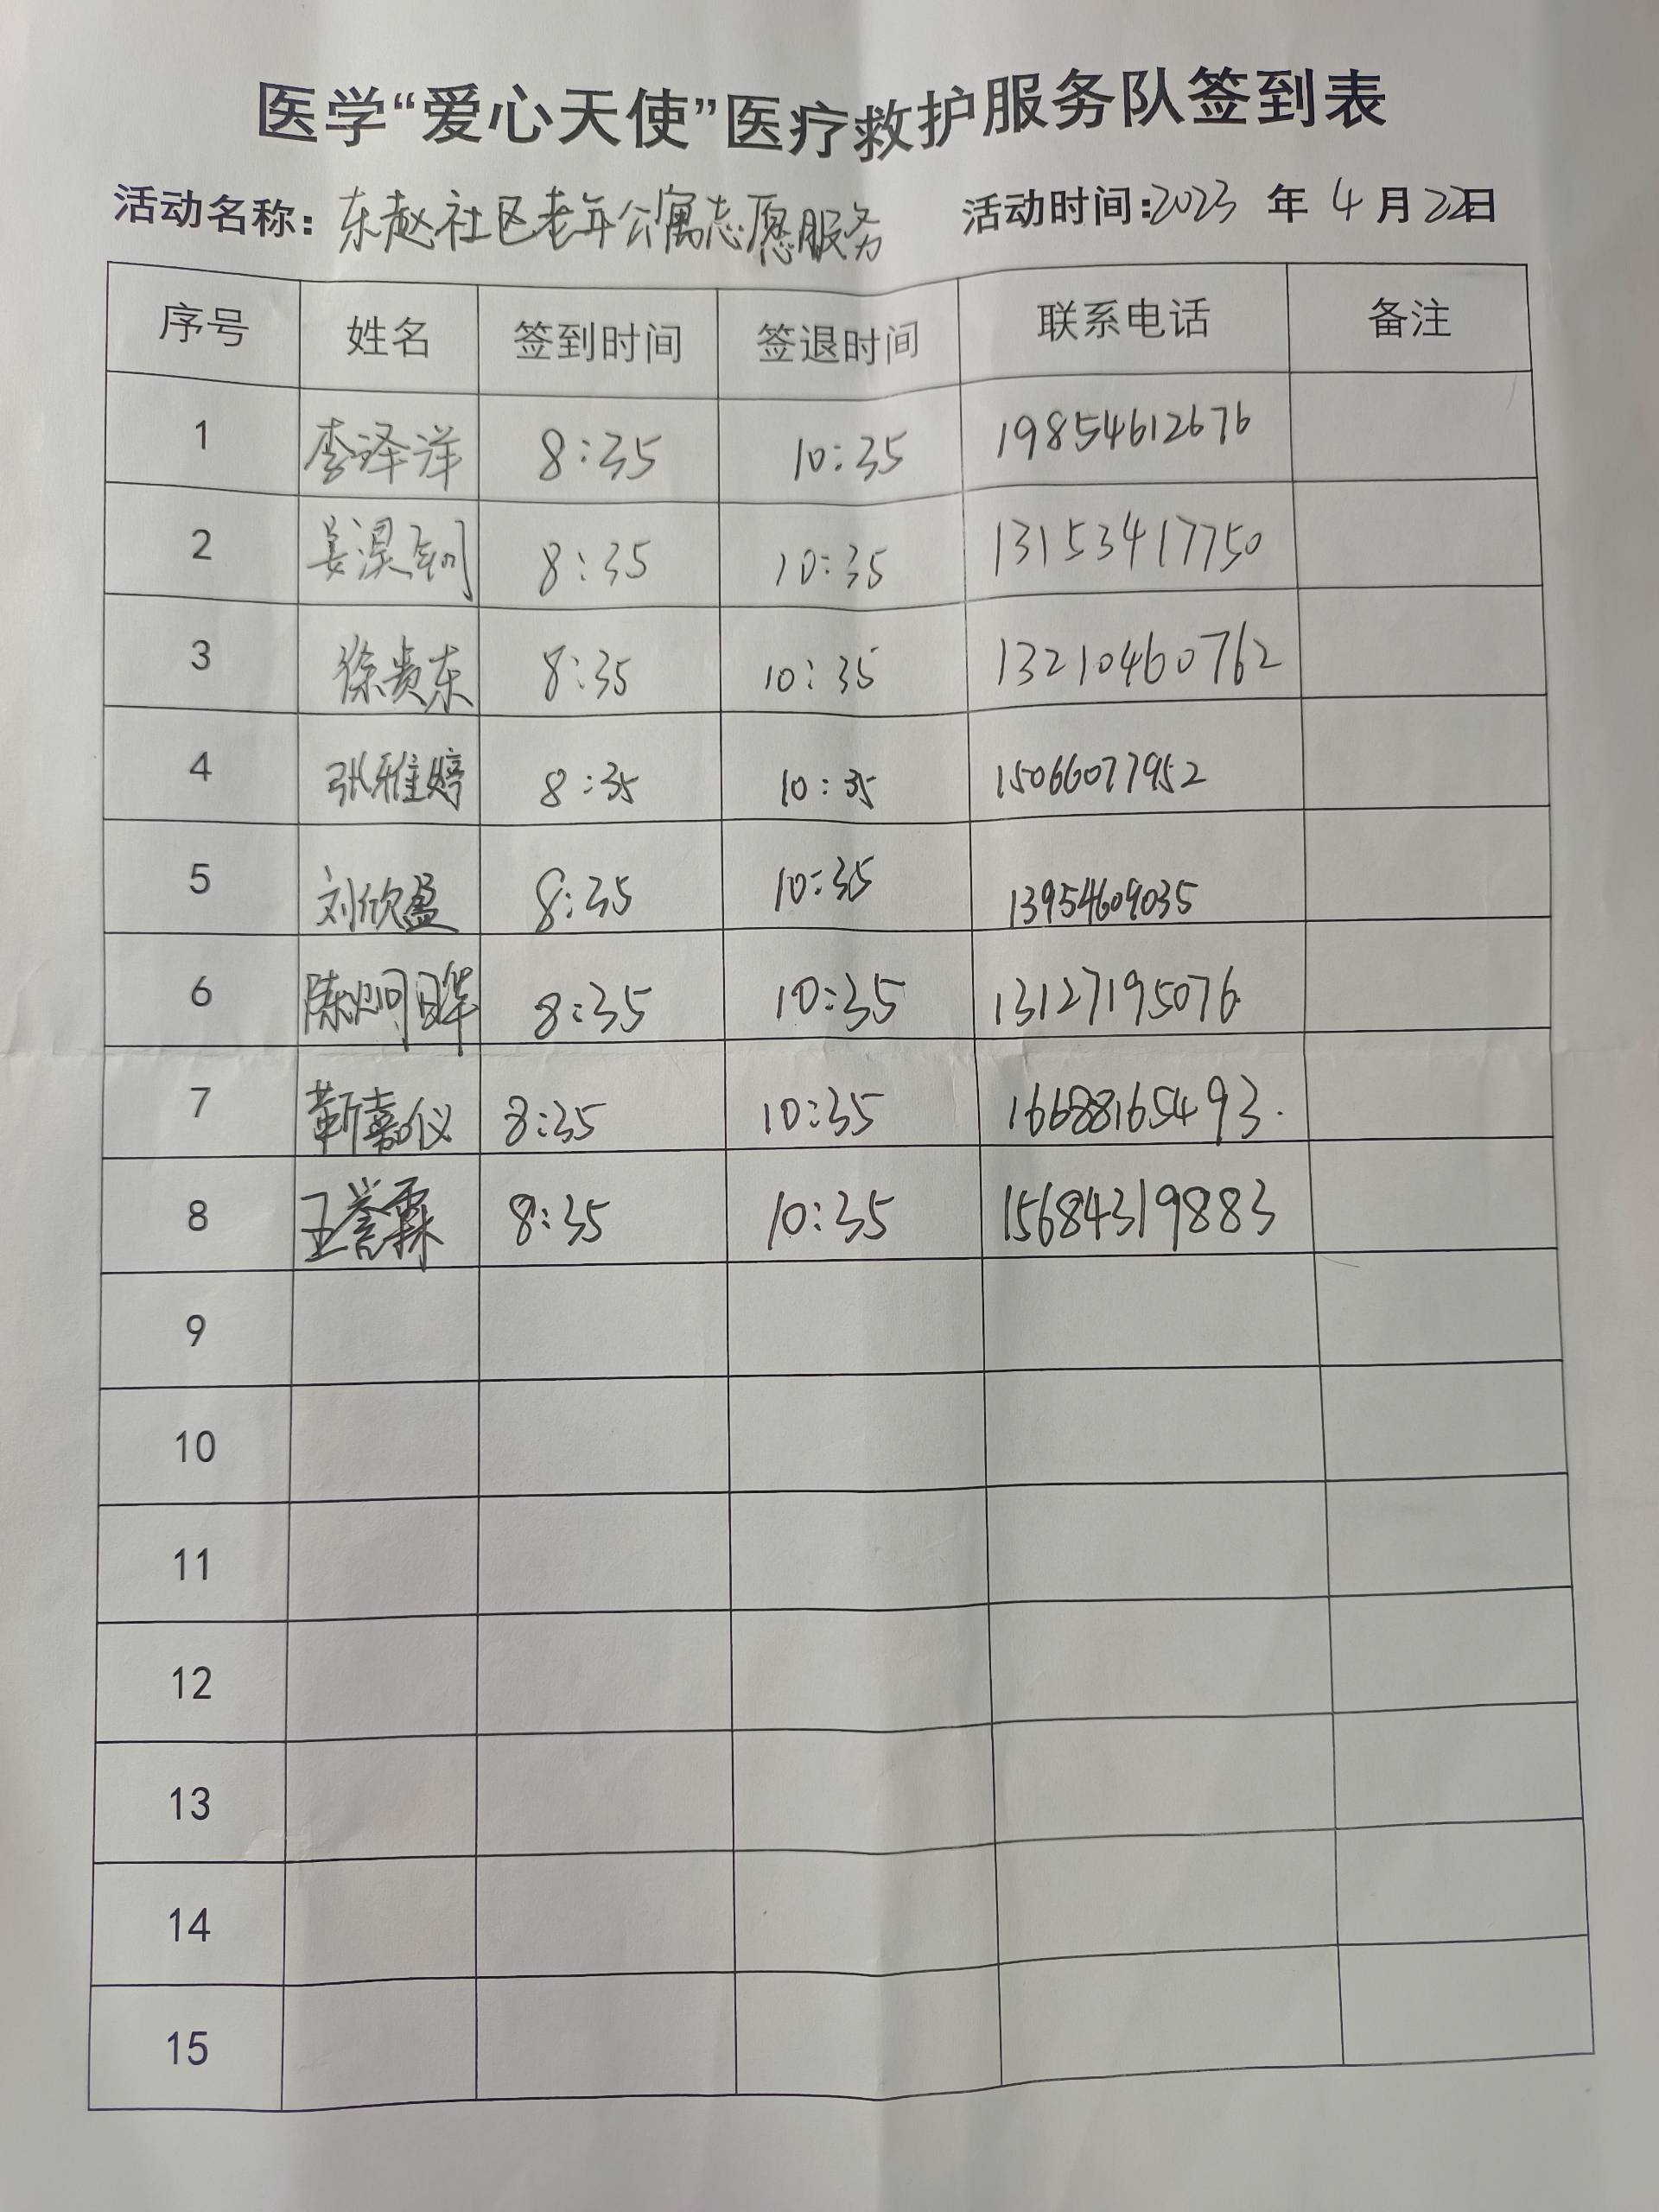 医学“爱心天使”医疗救护服务队签到表
活动名称：东赵社区老年公寓志愿服务 活动时间：2023 年 4 月 22日
序号 姓名 签到时间 签退时间 联系电话 备注
1 李泽洋 8:35 10:35 19854612676
2 8:35 10:35 13153417750
3 徐贵东 8:35 10:35 13210460762
4 张雅婷 8:35 10:35 15066077952
5 刘欣盈 8:35 10:35 13954609035
6 陈炯晔 8:35 10:35 13127195076
7 靳嘉仪 8:35 10:35 16688165493.
8 王誉霖 8:35 10:35 15684319883
9
10
11
12
13
14
15